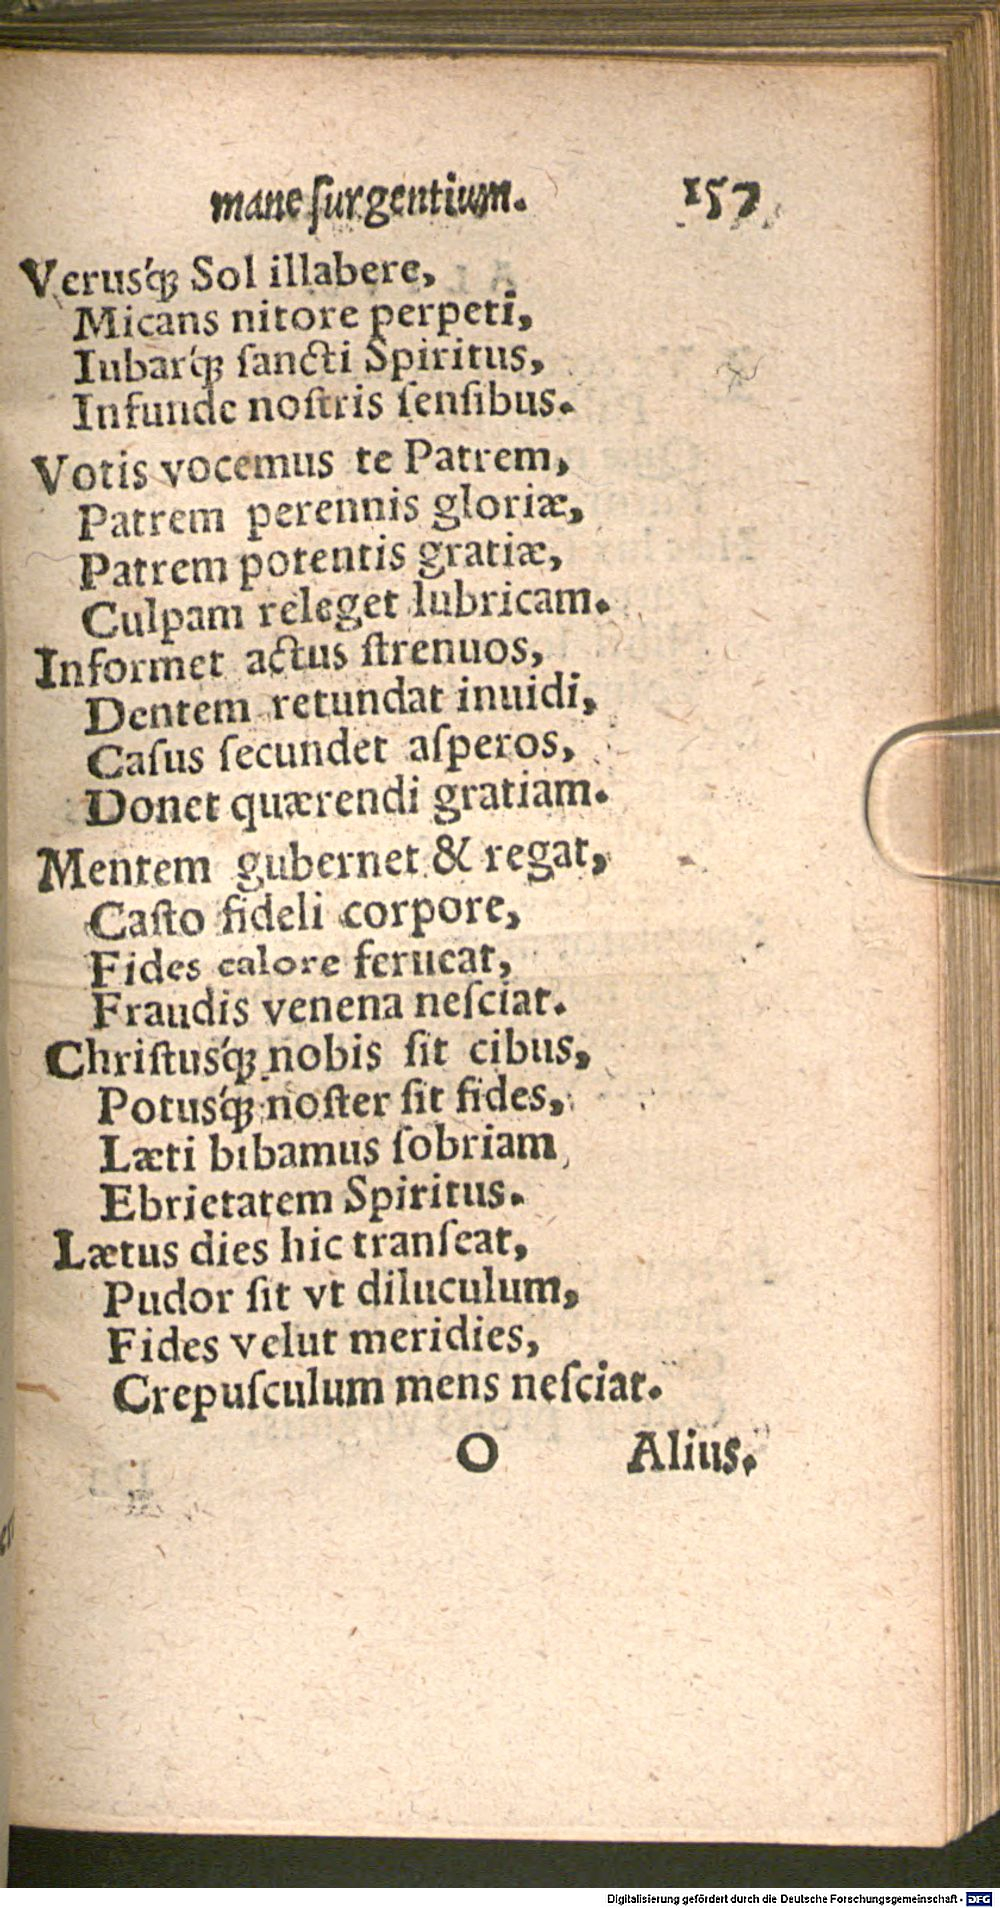 mane ſurgentium. 157
Verusq́; Sol illabere,
Micans nitore perpeti,
Iubarq́; ſancti Spiritus,
Infunde noſtris ſenſibus.
Votis vocemus te Patrem,
Patrem perennis gloriæ,
Patrem potentis gratiæ,
Culpam releget lubricam.
Informet actus ſtrenuos,
Dentem retundat inuidi,
Caſus ſecundet aſperos,
Donet quærendi gratiam.
Mentem gubernet & regat,
Caſto fideli corpore,
Fides calore ferueat,
Fraudis venena neſciat.
Chriſtusq́; nobis ſit cibus,
Potusq́; noſter ſit fides,
Læti bibamus ſobriam
Ebrietatem Spiritus.
Lætus dies hic tranſeat,
Pudor ſit vt diluculum,
Fides velut meridies,
Crepuſculum mens neſciat.
O Alius.
Digitalisierung gefördert durch die Deutsche Forschungsgemeinschaft - DFG